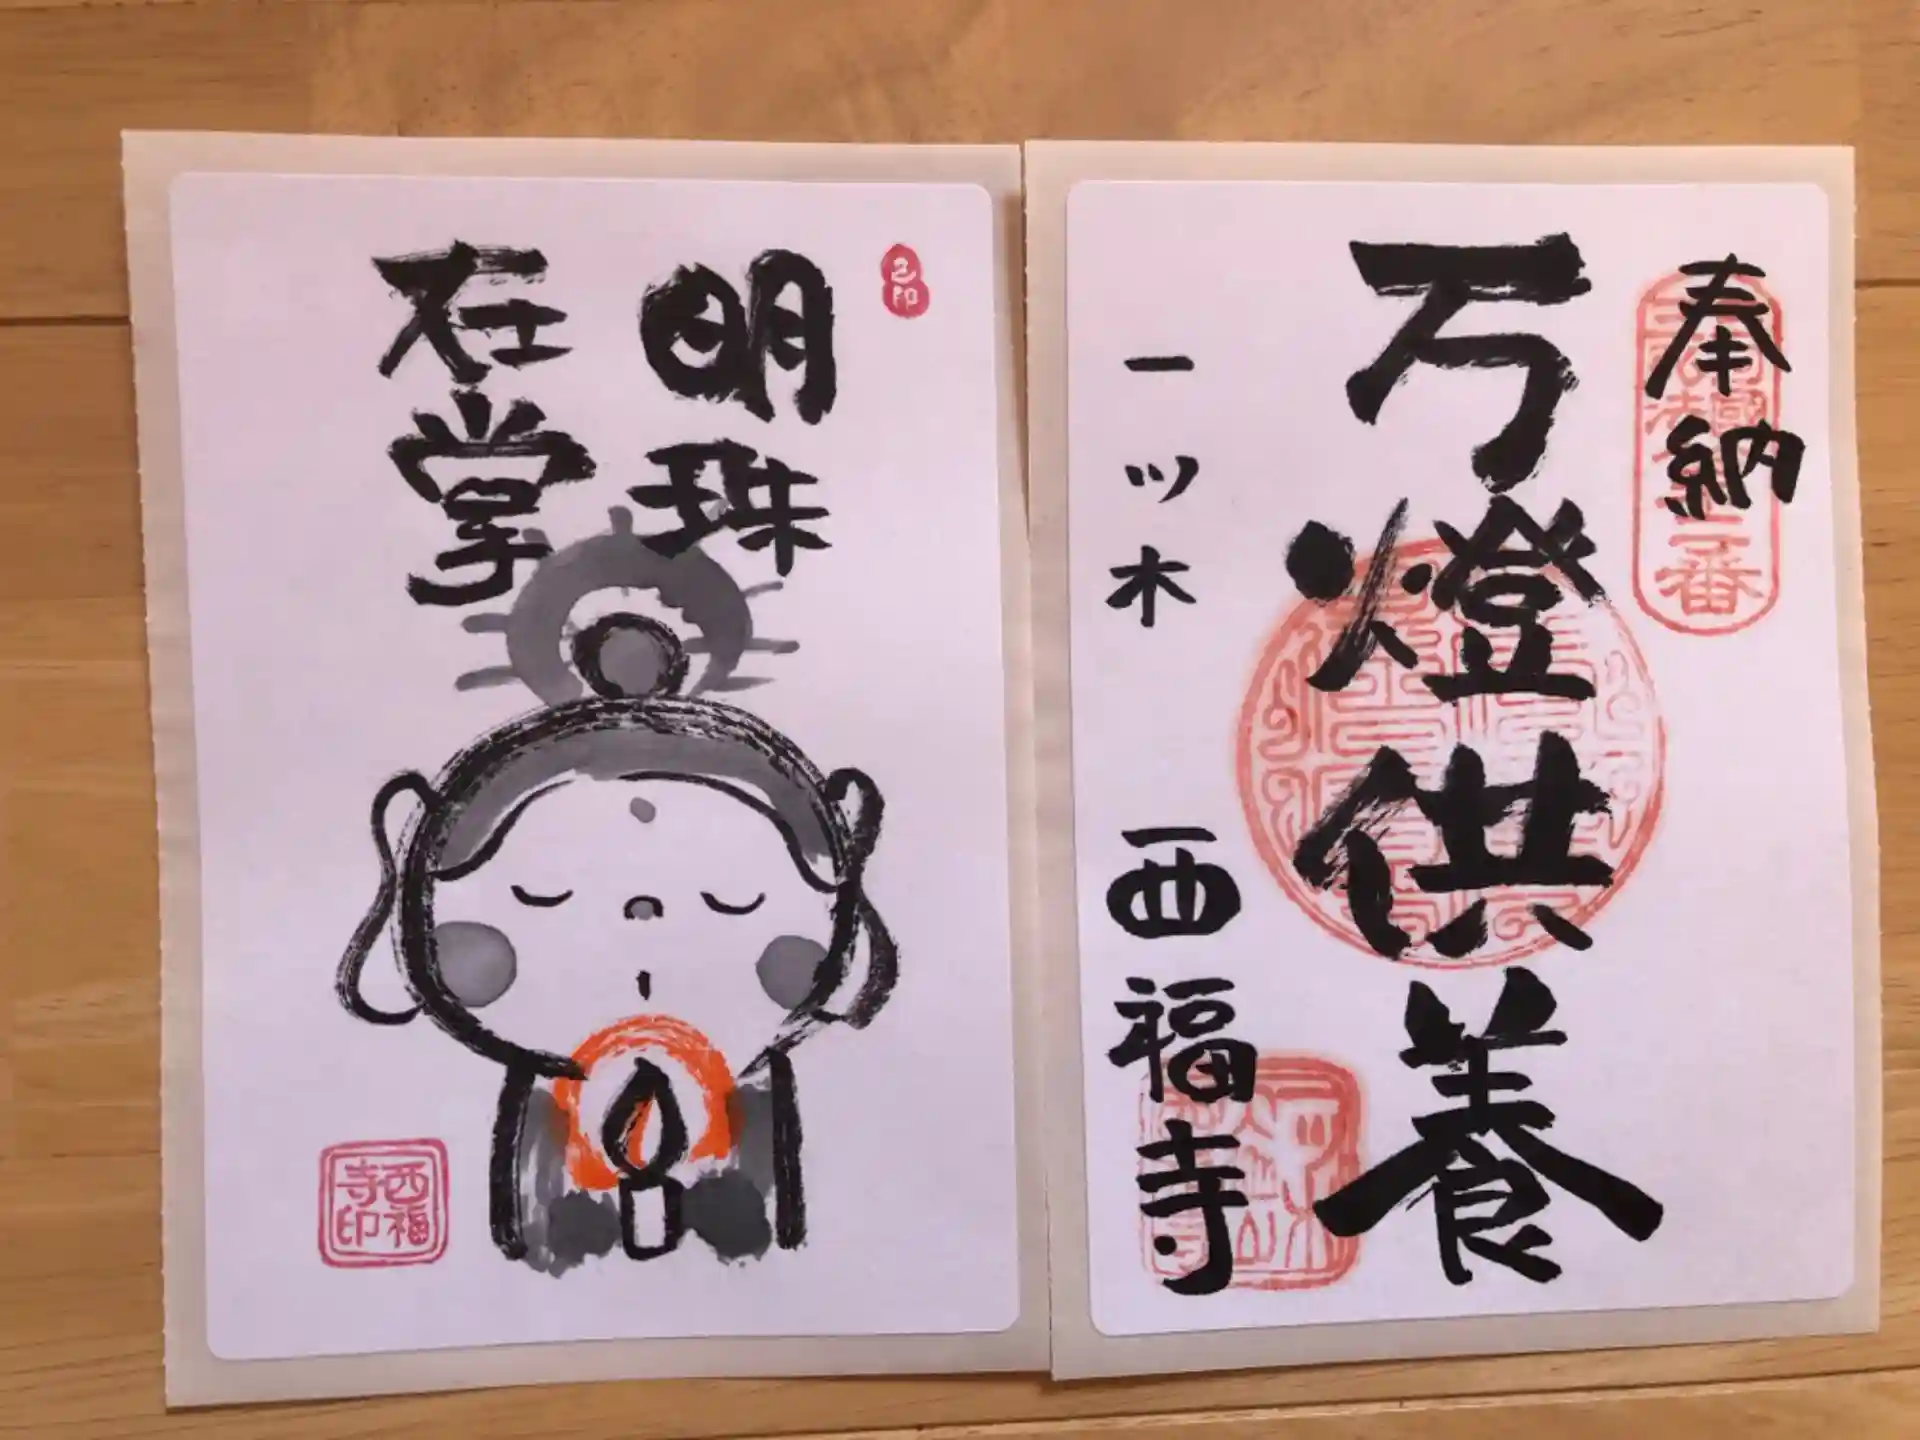 奉納
万燈供養
一ツ木 西福寺
明珠
在掌
西福
寺印